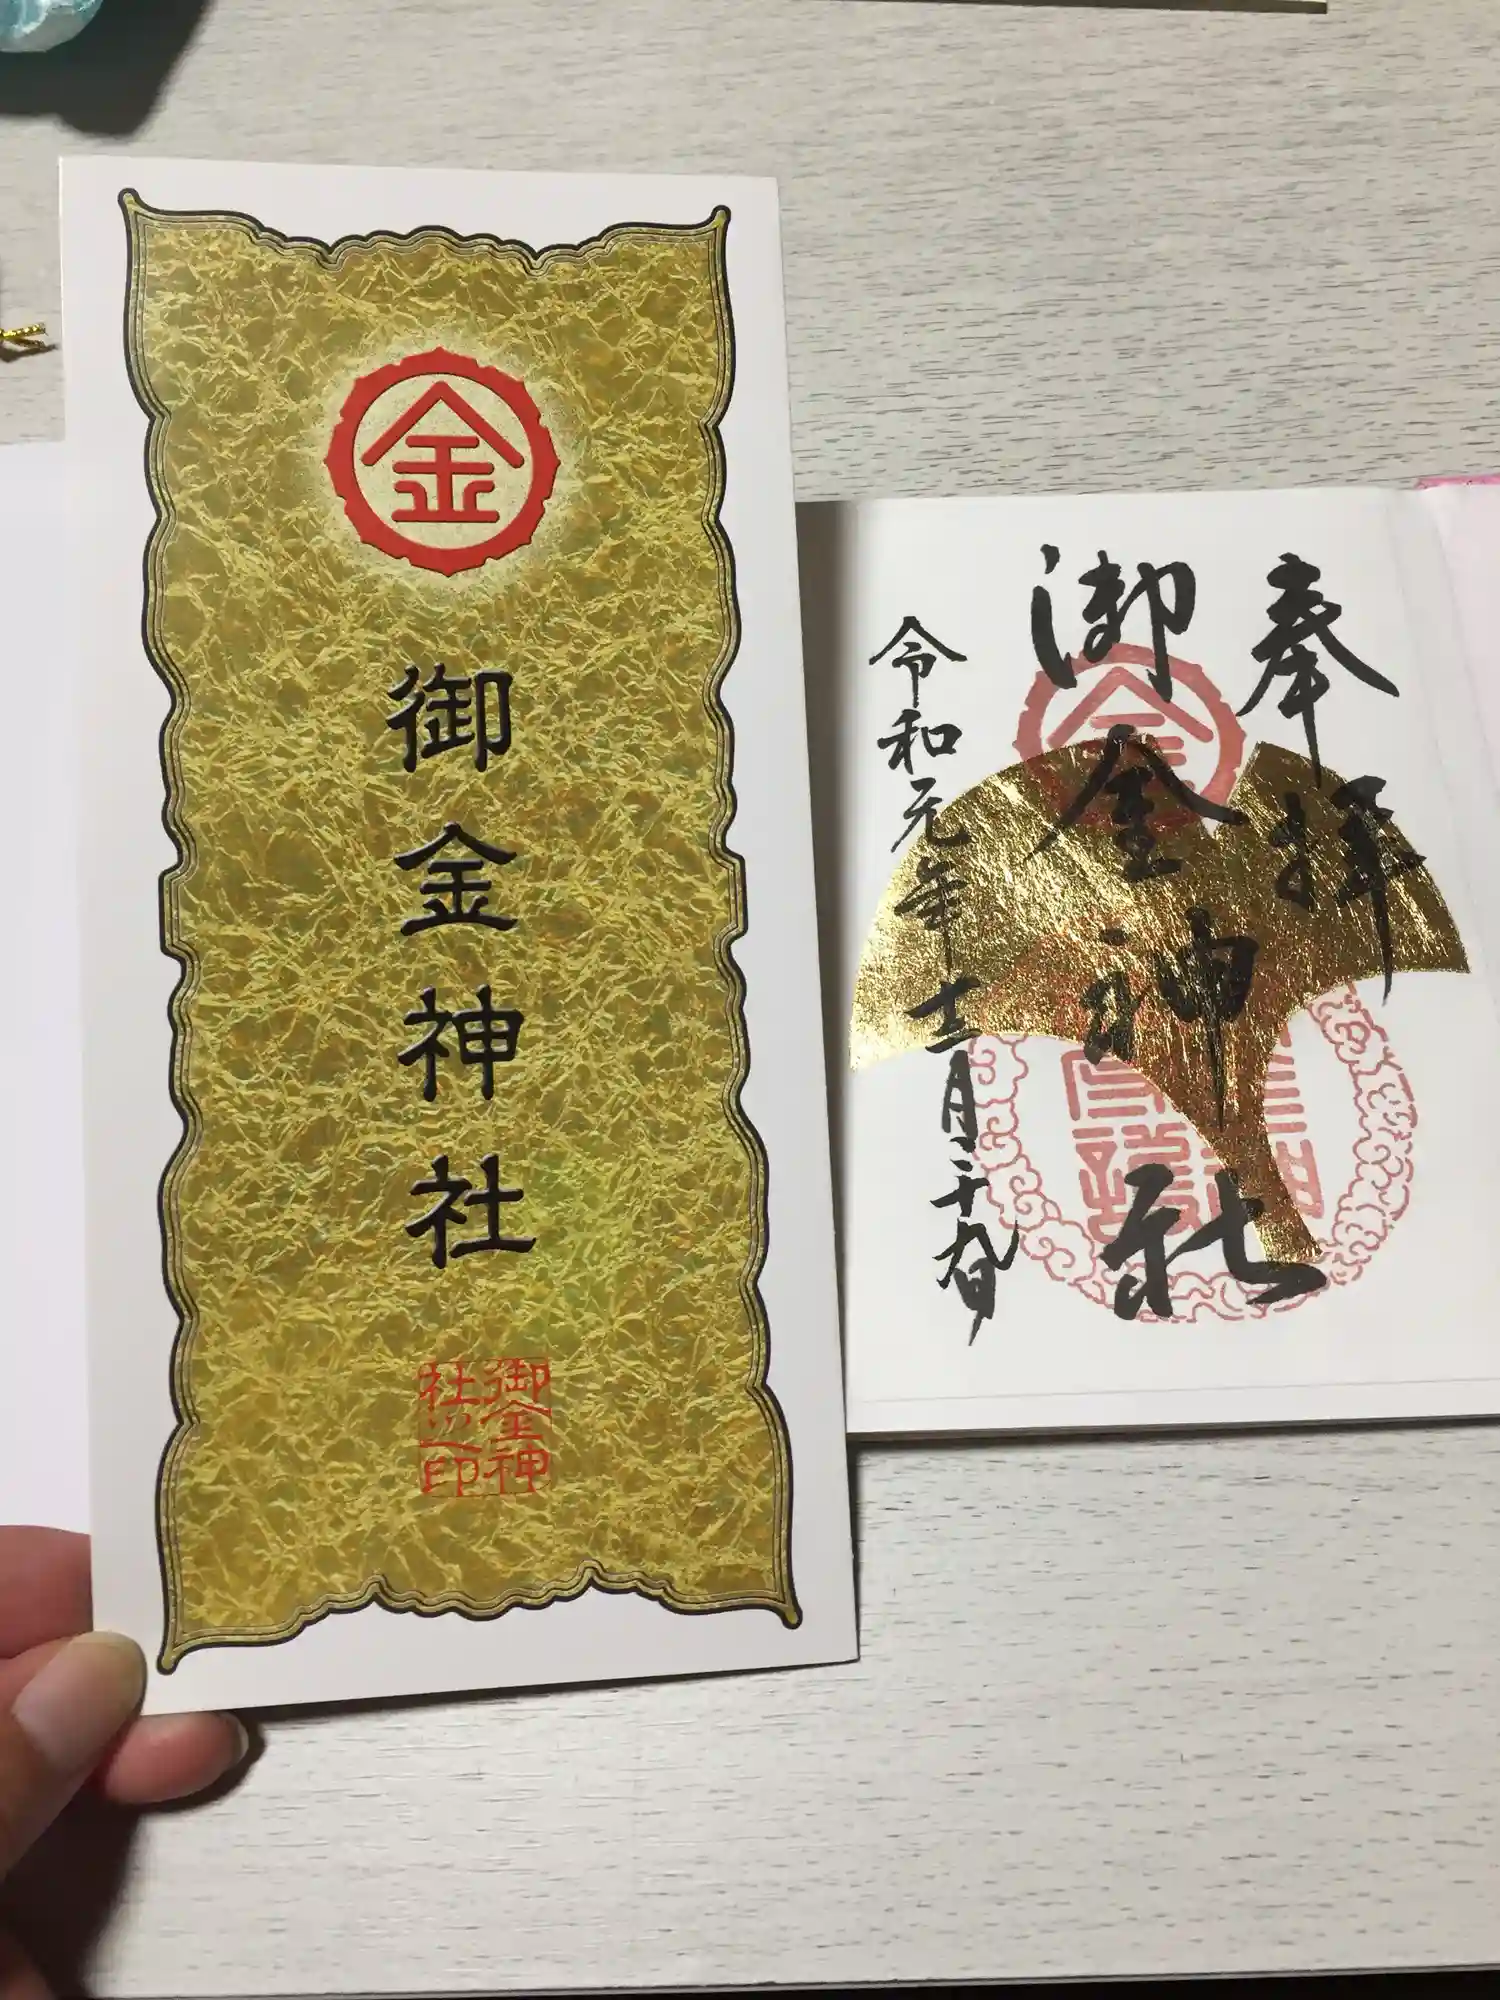 金
御金神社
御金神社之印
奉拝
金
御金神社
令和元年十二月二十九日